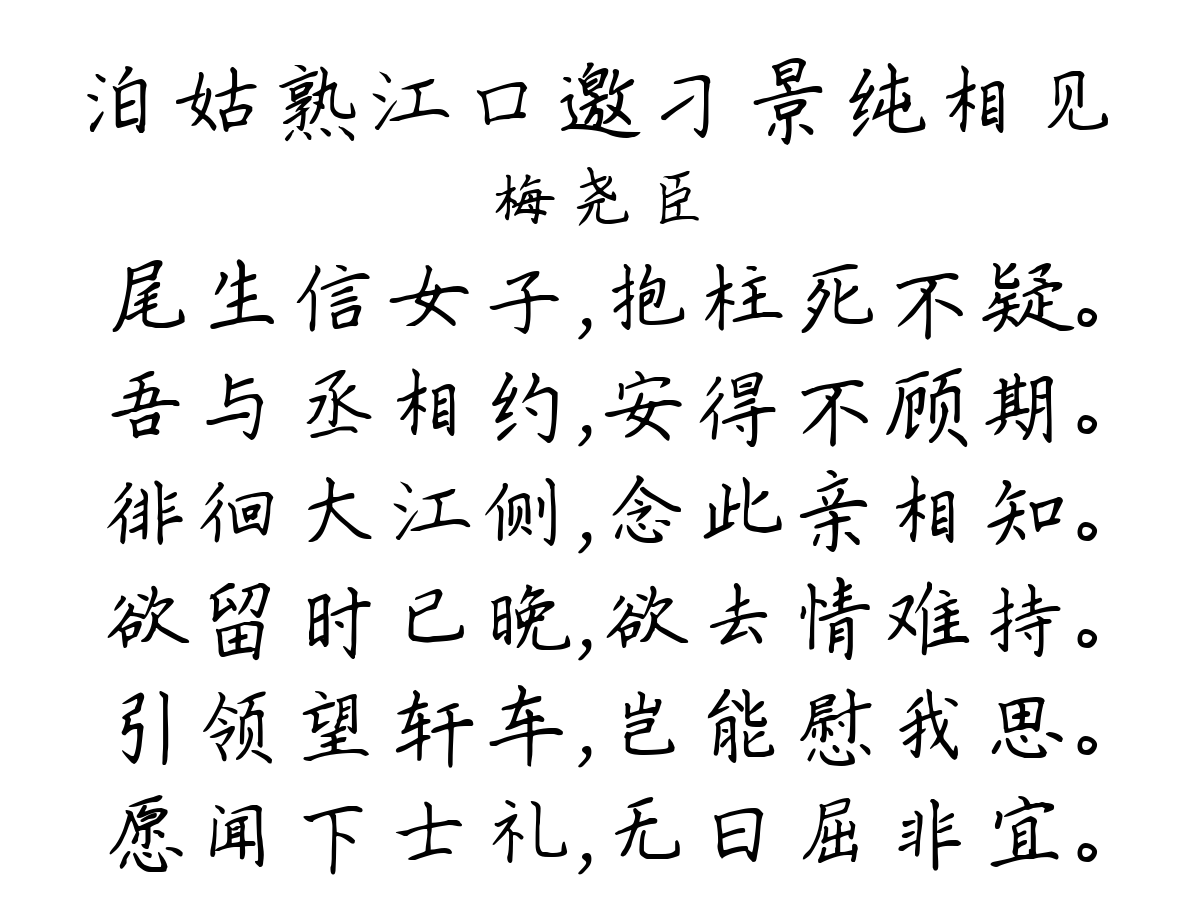 泊姑熟江口邀刁景纯相见
梅尧臣
尾生信女子,抱柱死不疑。
吾与丞相约,安得不顾期。
徘徊大江侧,念此亲相知。
欲留时已晚,欲去情难持。
引领望轩车,岂能慰我思。
愿闻下士礼,无曰屈非宜。